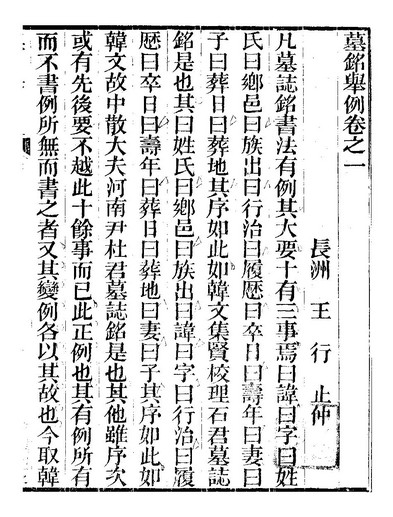 墓銘舉例卷之一
長洲 王 行 止仲
凡墓誌銘書法有例其大要十有三事焉曰諱曰字曰姓
氏曰鄉邑曰族出曰行治曰履歷曰卒日曰壽年曰妻曰
子曰葬日曰葬地其序如此如韓文集賢校理石君墓誌
銘是也其曰姓氏曰鄉邑曰族出曰諱曰字曰行治曰履
歷曰卒日曰壽年曰葬日曰葬地曰妻曰子其序如此如
韓文故中散大夫河南尹杜君墓誌銘是也其他雖序次
或有先後要不越此十餘事而已此正例也其有例所有
而不書例所無而書之者又其變例各以其故也今取韓